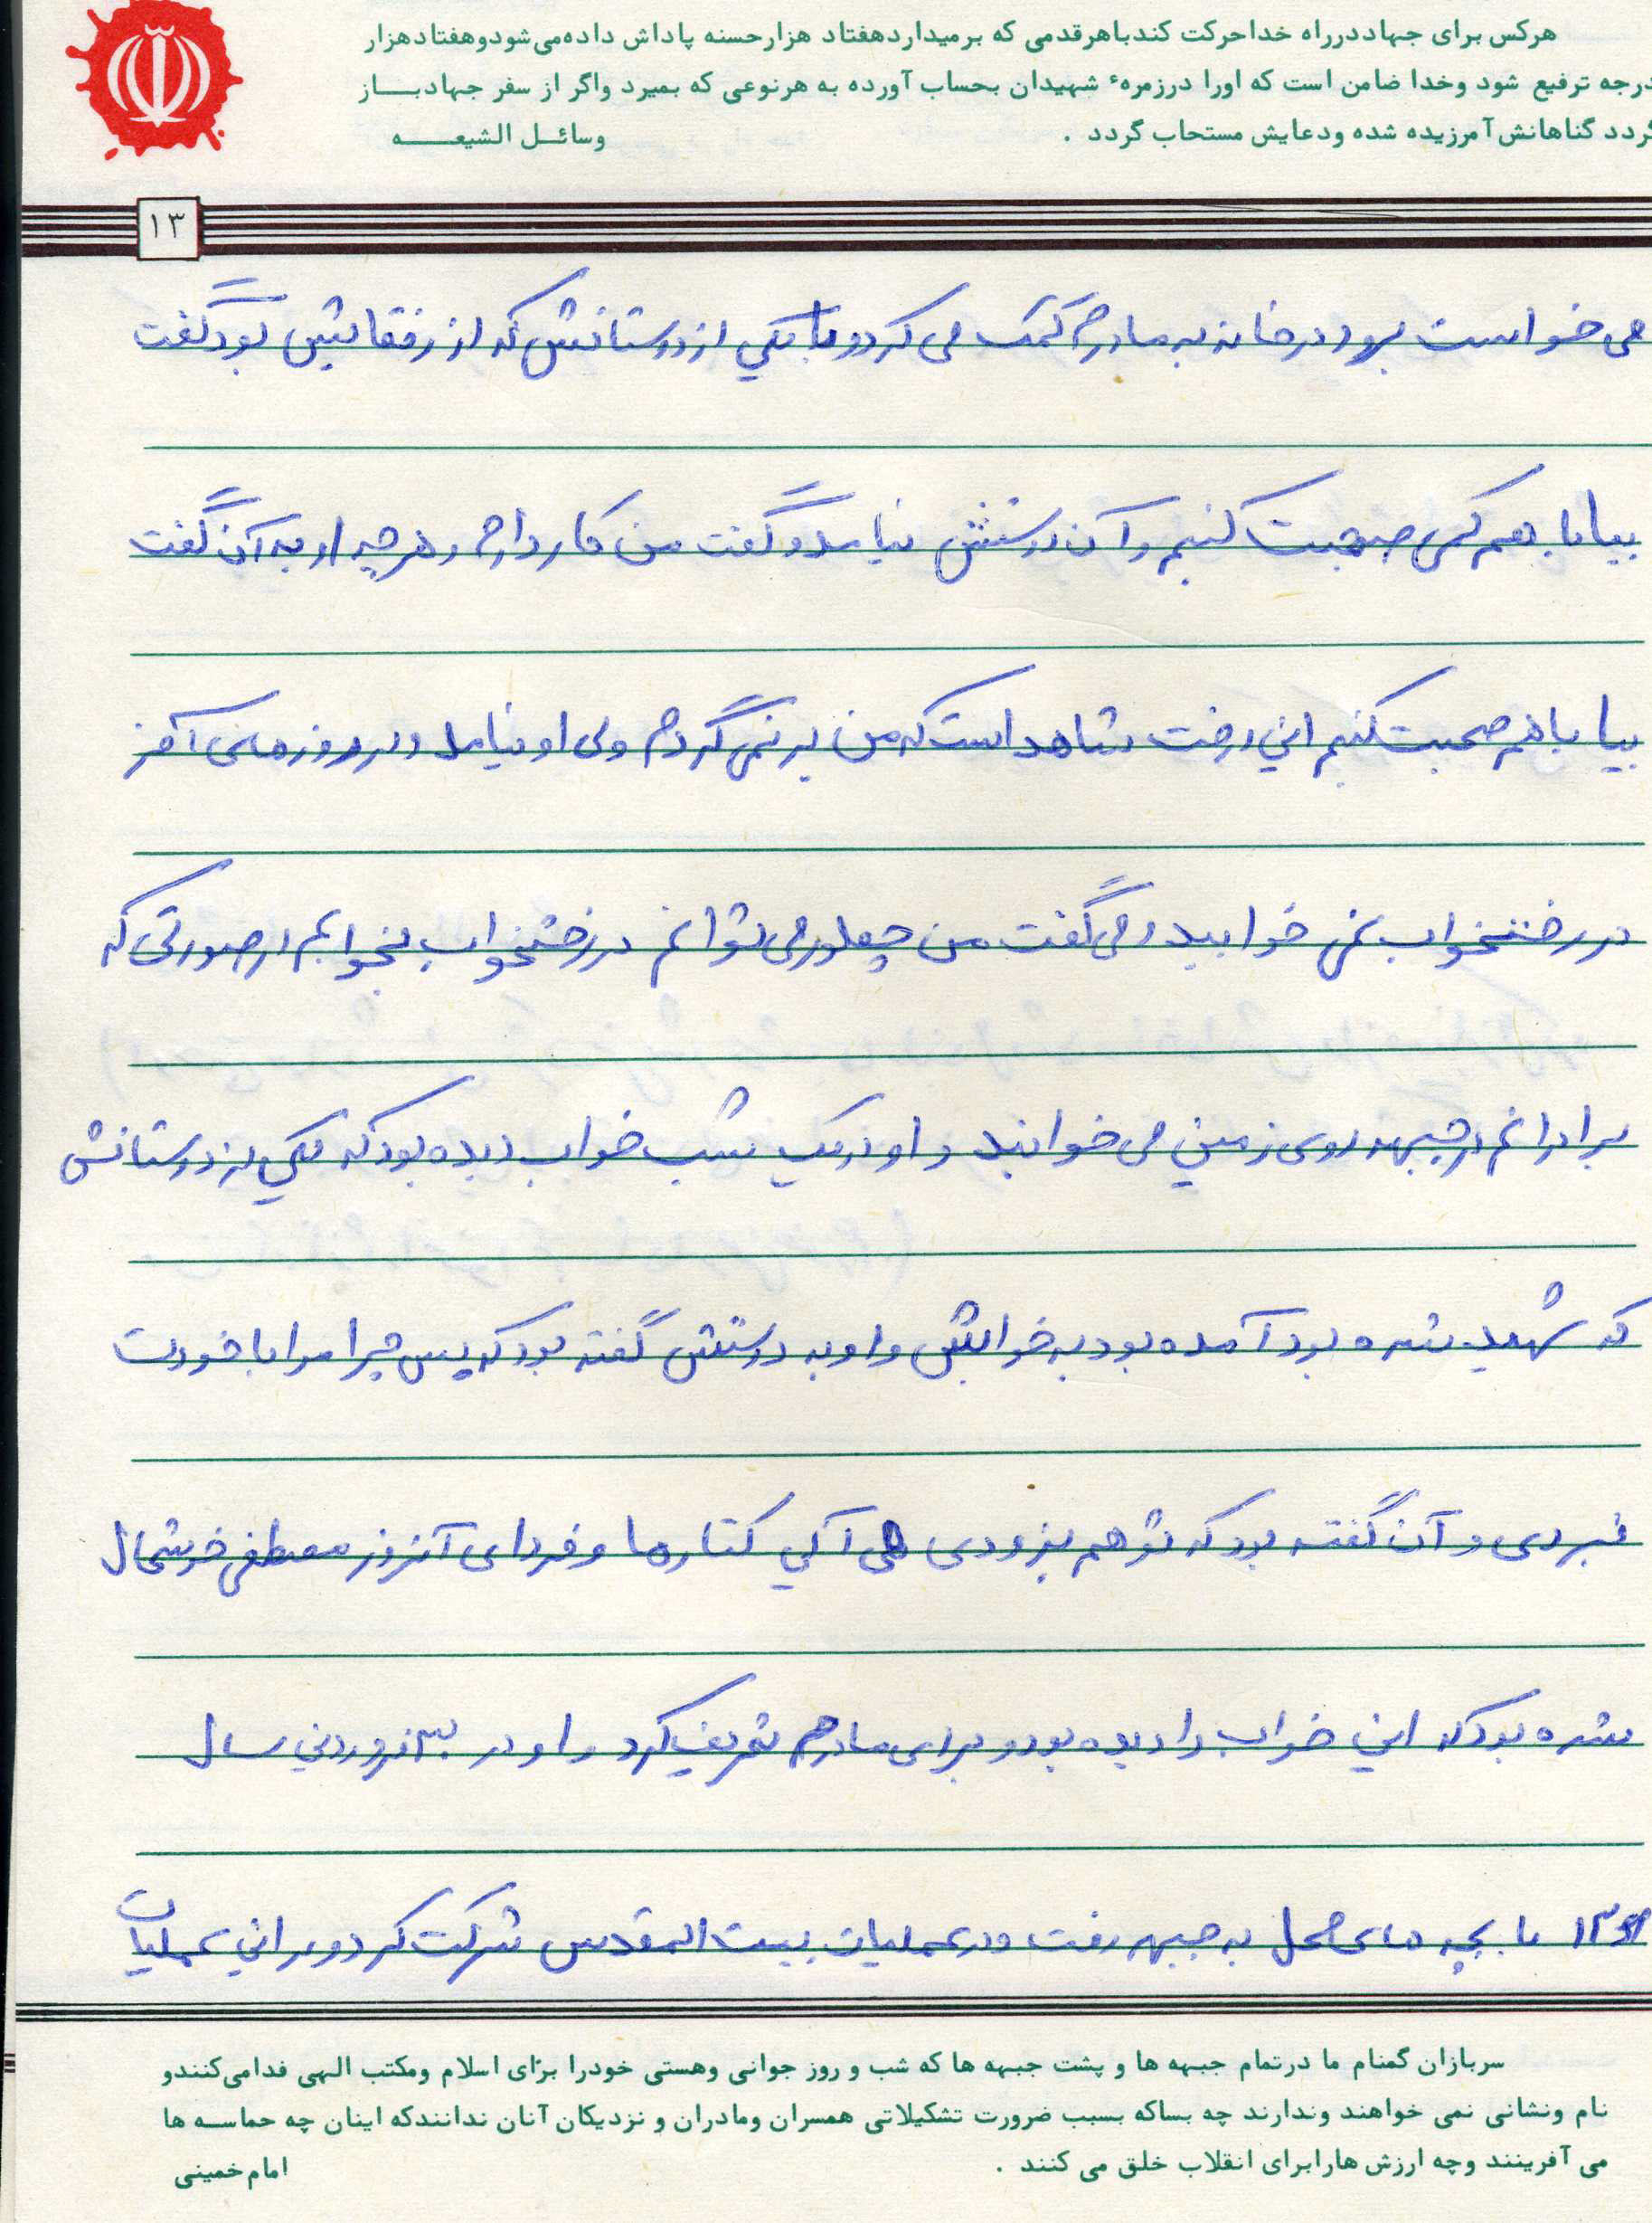 هرکس برای جهاددرراه خداحرکت کندباهرقدمی که برمیداردهفتاد هزارحسنه پاداش داده‌می‌شودوهفتادهزار
درجه ترفیع شود وخدا ضامن است که اورا درزمرهٔ شهیدان بحساب آورده به هرنوعی که بمیرد واگر از سفر جهادبـــاز
گردد گناهانش آمرزیده شده ودعایش مستحاب گردد .
وسائــل الشیعــــه
۱۳
می خواست برود درخانه به مادرم کمک می کرد و با یکی از دوستانش که از رفقایش بود گفت
بیا با هم کمی صحبت کنیم و آن دوستش نیامد و گفت من کار دارم و هر چه او به آن گفت
بیا با هم صحبت کنیم این درخت شاهد است که من بر نمی گردم ولی او نیامد و در روزهای آخر
در رختخواب نمی خوابید و می گفت من چطور می توانم در رختخواب بخوابم در صورتی که
برادرانم در جبهه روی زمین می خوابند و او در یک شب خواب دیده بود که یکی از دوستانش
که شهید شده بود آمده بود به خوابش و او به دوستش گفته بود که پس چرا مرا با خودت
نبردی و آن گفته بود که تو هم بزودی می آئی کنار ما و فردای آنروز مصطفی خوشحال
شده بود که این خواب را دیده بود و برای مادرم تعریف کرد و او در فروردین سال
با بچه های محل به جبهه رفت و در عملیات بیت المقدس شرکت کرد و در این عملیات
سربازان گمنام ما درتمام جبهه ها و پشت جبهه ها که شب و روز جوانی وهستی خودرا برای اسلام ومکتب الهی فدامی‌کنندو
نام ونشانی نمی خواهند وندارند چه بساکه بسبب ضرورت تشکیلاتی همسران ومادران و نزدیکان آنان ندانندکه اینان چه حماســه ها
می آفرینند وچه ارزش هارابرای انقلاب خلق می کنند .
امام‌خمینی